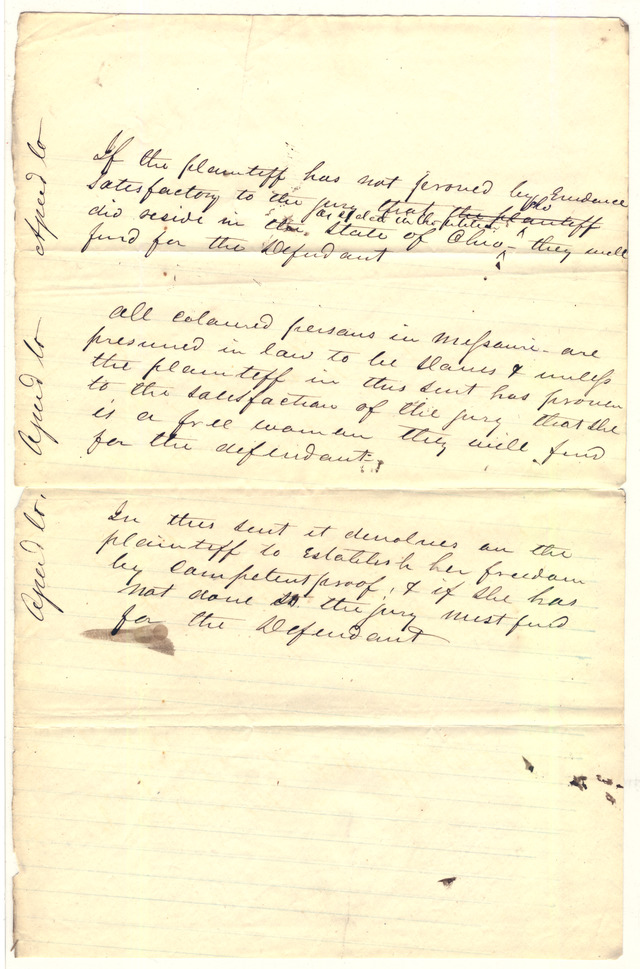 If the plaintiff has not proved by Evidence
satisfactory to the jury that the plaintiff she
did reside in the State of Ohio as stated in the petition they will
find for the Defendant
All coloured persons in Missouri are
presumed in law to be slaves & unless
the plaintiff in this suit has proven
to the satisfaction of the jury that she
is a free woman they will find
for the defendant
In this suit it devolves on the
plaintiff to Establish her freedom
by Competent proof, & if she has
not done so the jury must find
for the Defendant
Agreed to
Agreed to
Agreed to,